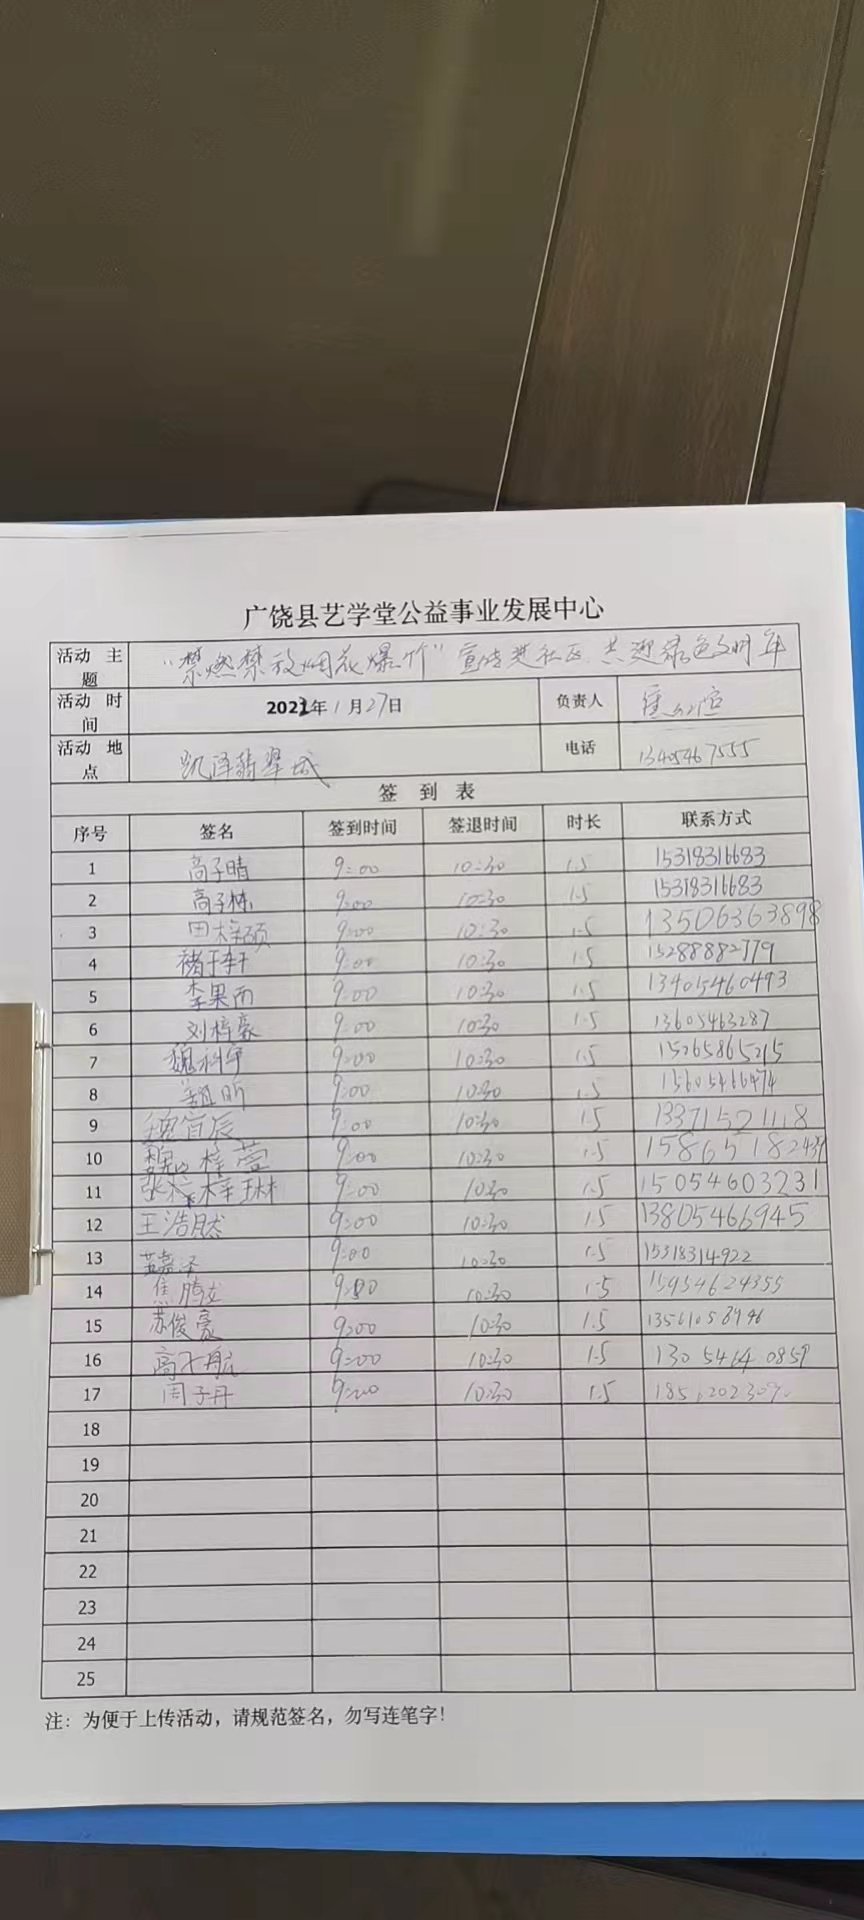 广饶县艺学堂公益事业发展中心
活动主题 “禁燃禁放烟花爆竹”宣传进社区 共迎绿色文明年
活动时间 2022年1月27日 负责人
活动地点 凯泽翡翠城 电话 13405467555
签到表
序号 签名 签到时间 签退时间 时长 联系方式
1 高子晴 9:00 10:30 1.5 15318316683
2 高子栋 9:00 10:30 1.5 15318316683
3 田梓硕 9:00 10:30 1.5 13506363898
4 褚于轩 9:00 10:30 1.5 15288882779
5 李果而 9:00 10:30 1.5 13405460493
6 刘梓豪 9:00 10:30 1.5 13605463287
7 魏科宇 9:00 10:30 1.5 15265865215
8 9:00 10:30 1.5
9 魏宜辰 9:00 10:30 1.5 13371521118
10 梓萱 9:00 10:30 1.5
11 张梓琳 9:00 10:30 1.5 15054603231
12 王浩然 9:00 10:30 1.5 13805466945
13 9:00 10:30 1.5 15318314922
14 焦腾龙 9:00 10:30 1.5 15954624355
15 苏俊豪 9:00 10:30 1.5
16 高子航 9:00 10:30 1.5 13054640859
17 周子丹 9:00 10:30 1.5
18
19
20
21
22
23
24
25
注：为便于上传活动，请规范签名，勿写连笔字！